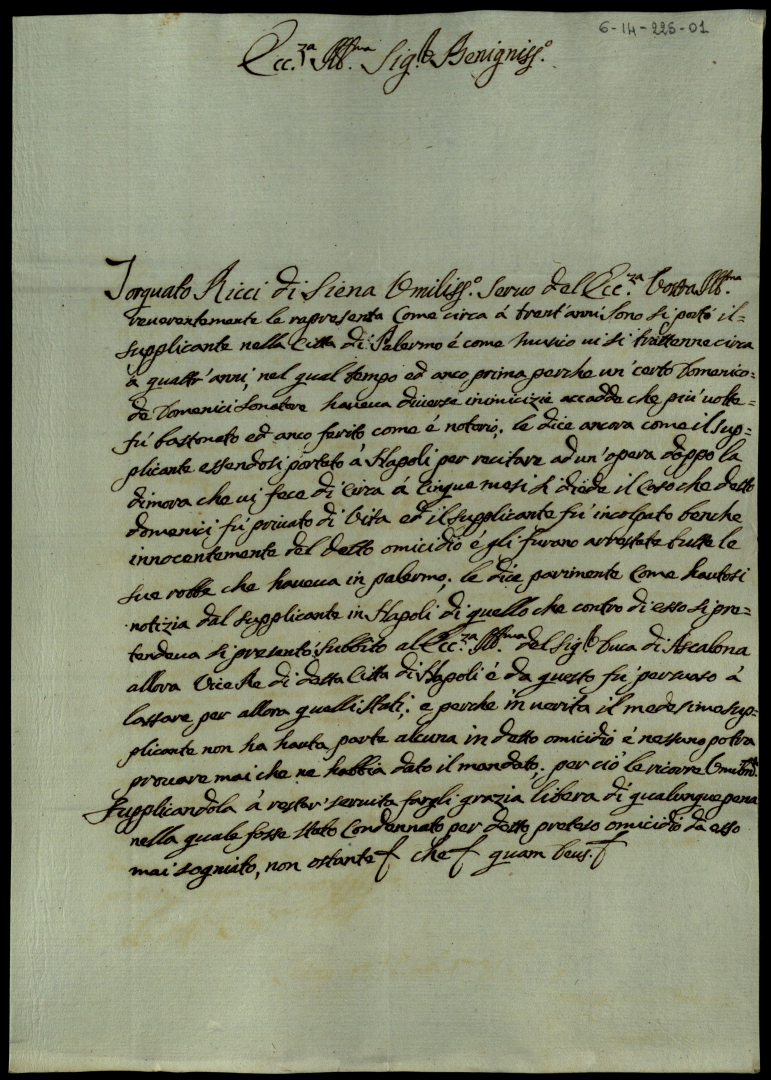 6-14-225-01
Ecc.za Ill.ma Sig.re Benigniss.o
Torquato Ricci di Siena Umiliss.o Servo dell'Ecc.za Vostra Ill.ma
reverentemente le rapresenta come circa à trent'anni sono si portò il-
supplicante nella Città di Palermo è come musico vi si trattenne circa
à quattr'anni, nel qual tempo ed anco prima perche un certo Domenico-
de Domenici sonatore haveva diverse inimicizie accadde che più volte-
fù bastonato ed anco ferito come è notorio; le dice ancora come il sup=
plicante essendosi portato à Napoli per recitare ad un'opera doppo la
dimora che vi fece di circa à cinque mesi si diede il caso che detto
domenici fù privato di vita ed il supplicante fù incolpato benche
innocentemente del detto omicidio è gli furano arrestate tutte le
sue robbe che haveva in palermo; le dice parimente come hautosi
notizia dal supplicante in Napoli di quello che contro di esso si pre=
tendeva si presentò subbito all'Ecc.za Ill.ma del Sig.re Duca di Ascalona
allora Vice Re di detta Città di Napoli è da questo fù persuaso à
lassare per allora quelli stati; e perche in verità il medesimo sup=
plicante non ha hauta parte alcuna in detto omicidio è nessuno potrà
provare mai che ne habbia dato il mandato; per ciò le ricorre
Supplicandola à restar servita fargli grazia libera di qualunque pena
nella quale fosse stato condennato per detto preteso omicidio da esso
mai sognuto, non ostante che quam Deus.